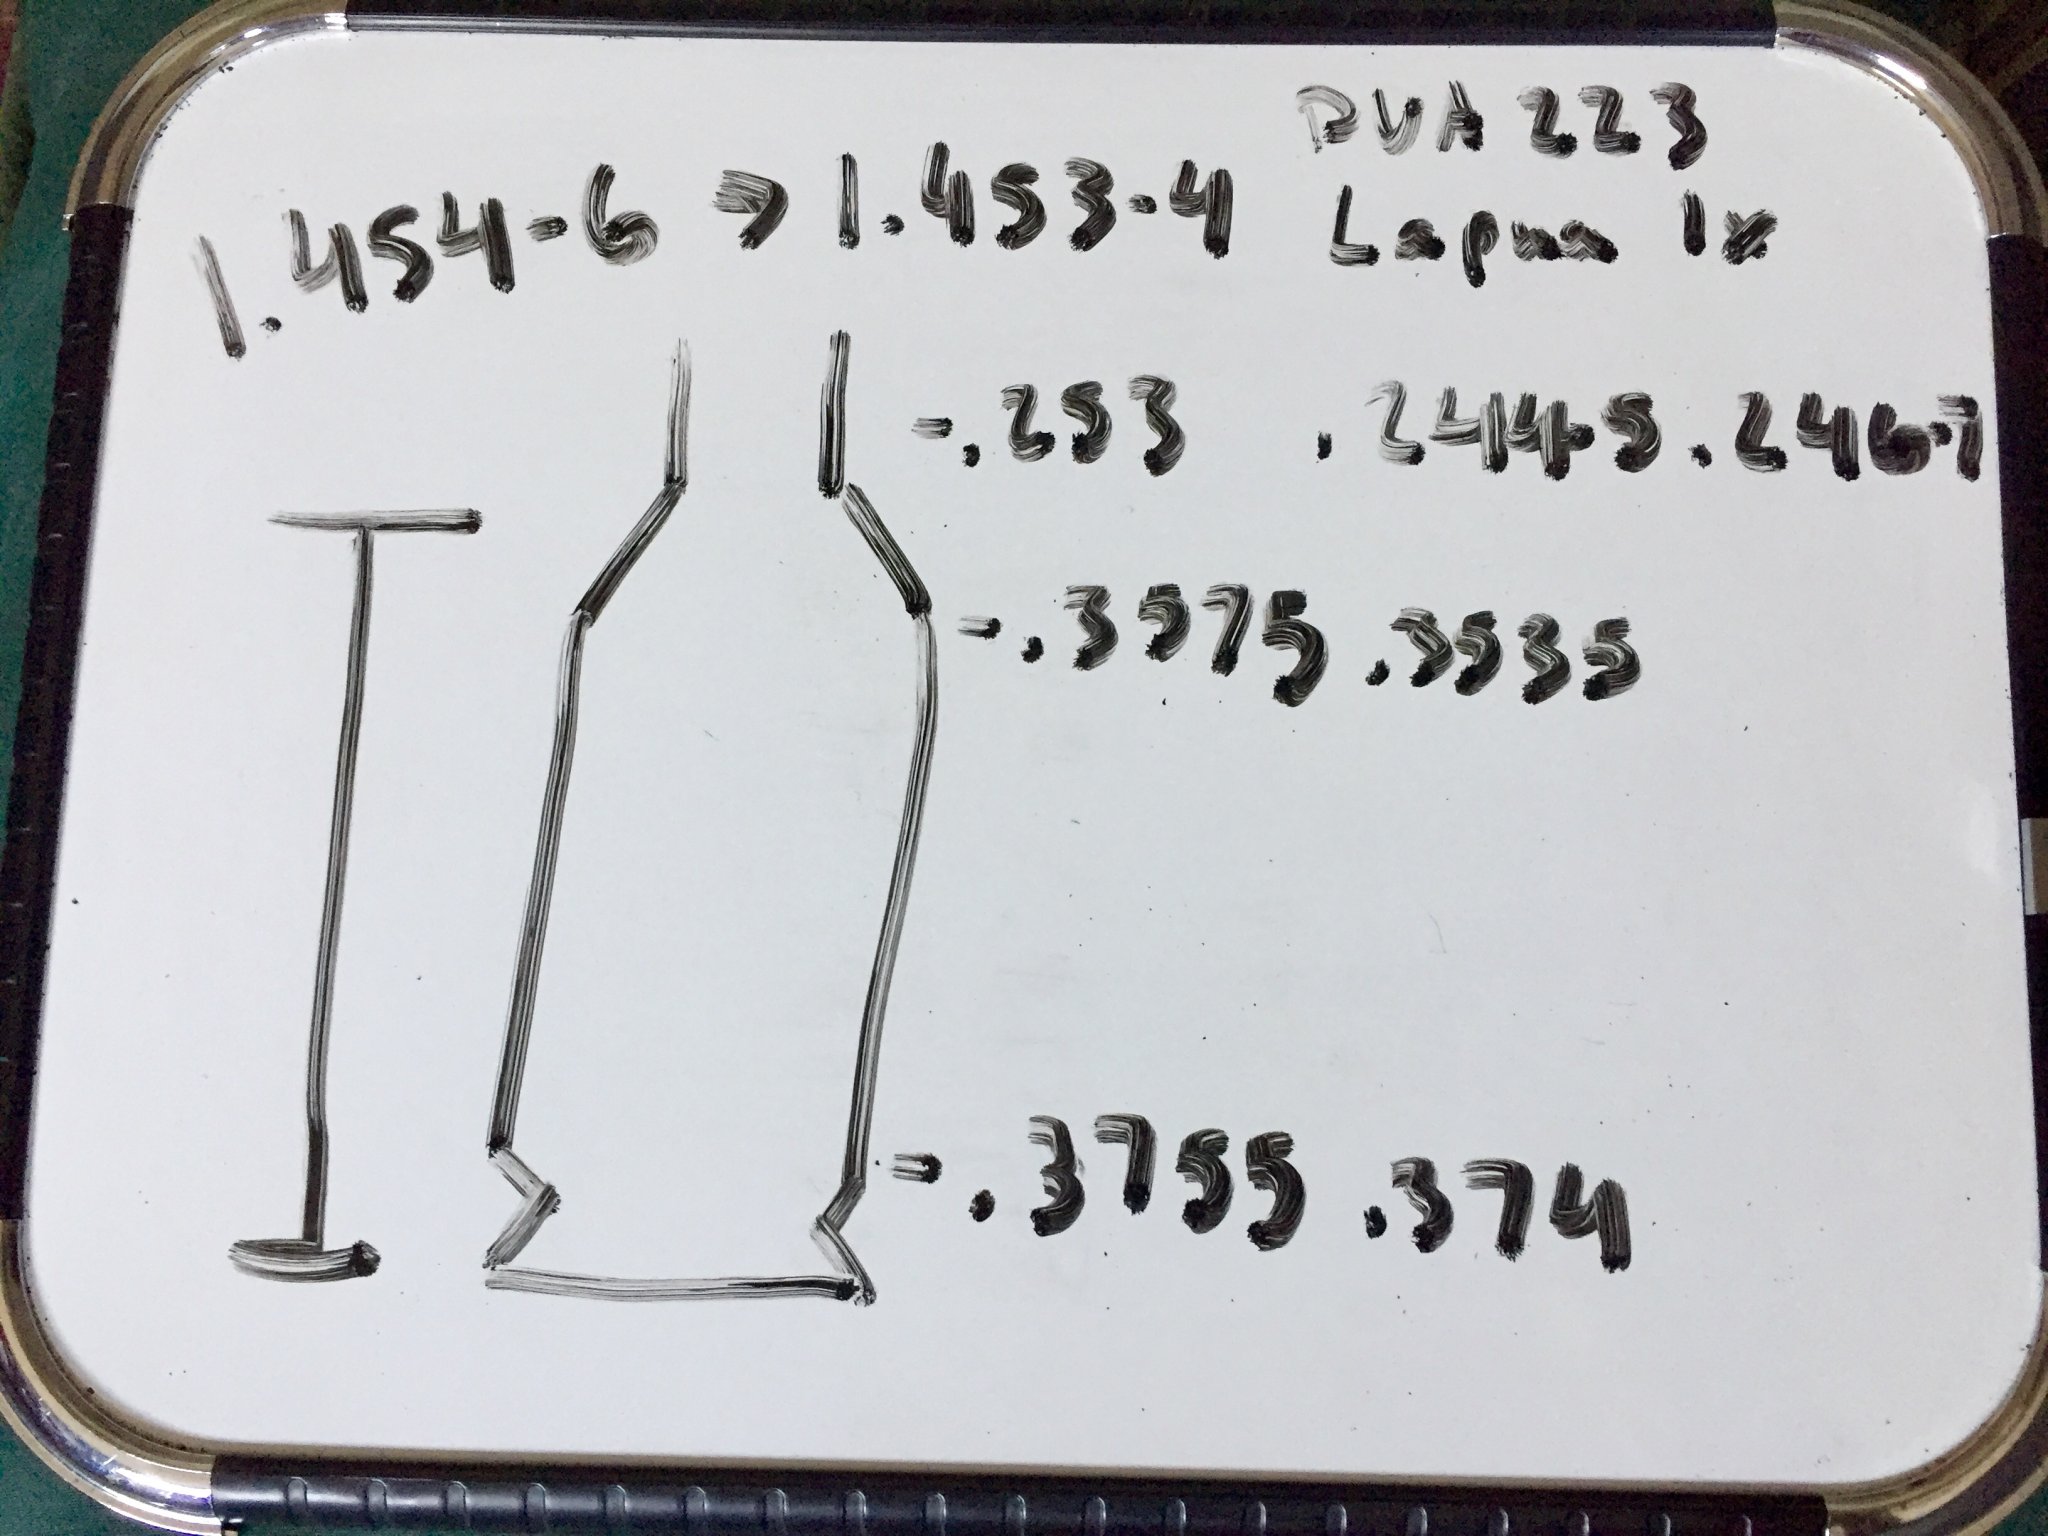 PVA 223
1.454-6 → 1.453-4 Lapua 1x
-.253 .2445 .246-7
-.3575 .3535
-.3755 .374